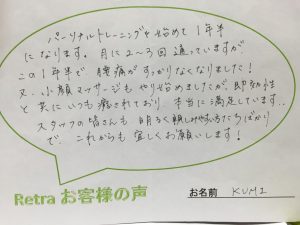 パーソナルトレーニングを始めて1年半
になります。月に2〜3回通っていますが
この1年半で腰痛がすっかりなくなりました!
又、小顔マッサージもやり始めましたが、即効性
と共にいつも癒されており、本当に満足しています。
スタッフの皆さんも明るく親しみやすい方たちばかり
で、これからも宜しくお願いします!
Retra お客様の声
お名前 KUMI